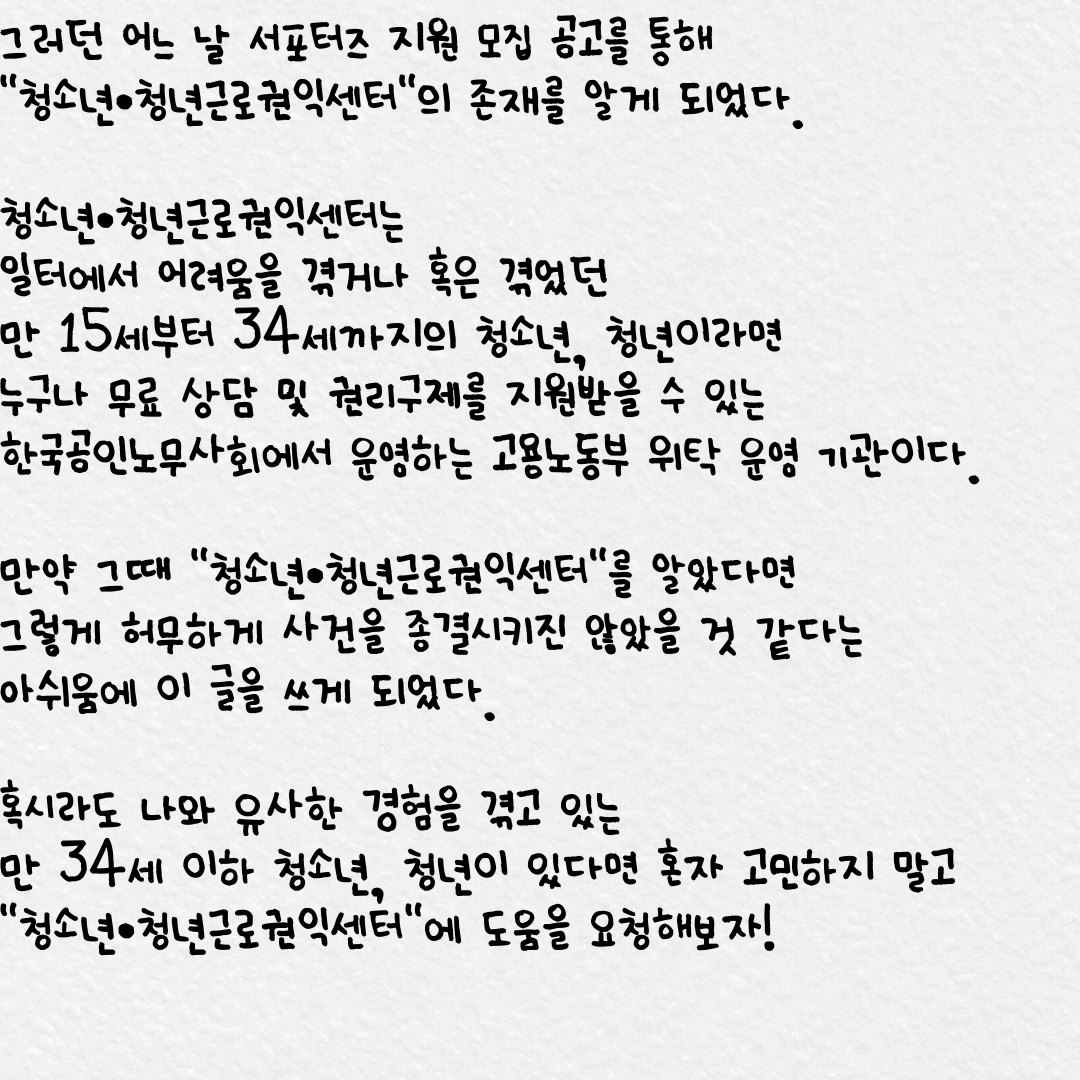 그러던 어느 날 서포터즈 지원 모집 공고를 통해
"청소년•청년근로권익센터"의 존재를 알게 되었다.
청소년•청년근로권익센터는
일터에서 어려움을 겪거나 혹은 겪었던
만 15세부터 34세까지의 청소년, 청년이라면
누구나 무료 상담 및 권리구제를 지원받을 수 있는
한국공인노무사회에서 운영하는 고용노동부 위탁 운영 기관이다.
만약 그때 "청소년•청년근로권익센터"를 알았다면
그렇게 허무하게 사건을 종결시키진 않았을 것 같다는
아쉬움에 이 글을 쓰게 되었다.
혹시라도 나와 유사한 경험을 겪고 있는
만 34세 이하 청소년, 청년이 있다면 혼자 고민하지 말고
"청소년•청년근로권익센터"에 도움을 요청해보자!